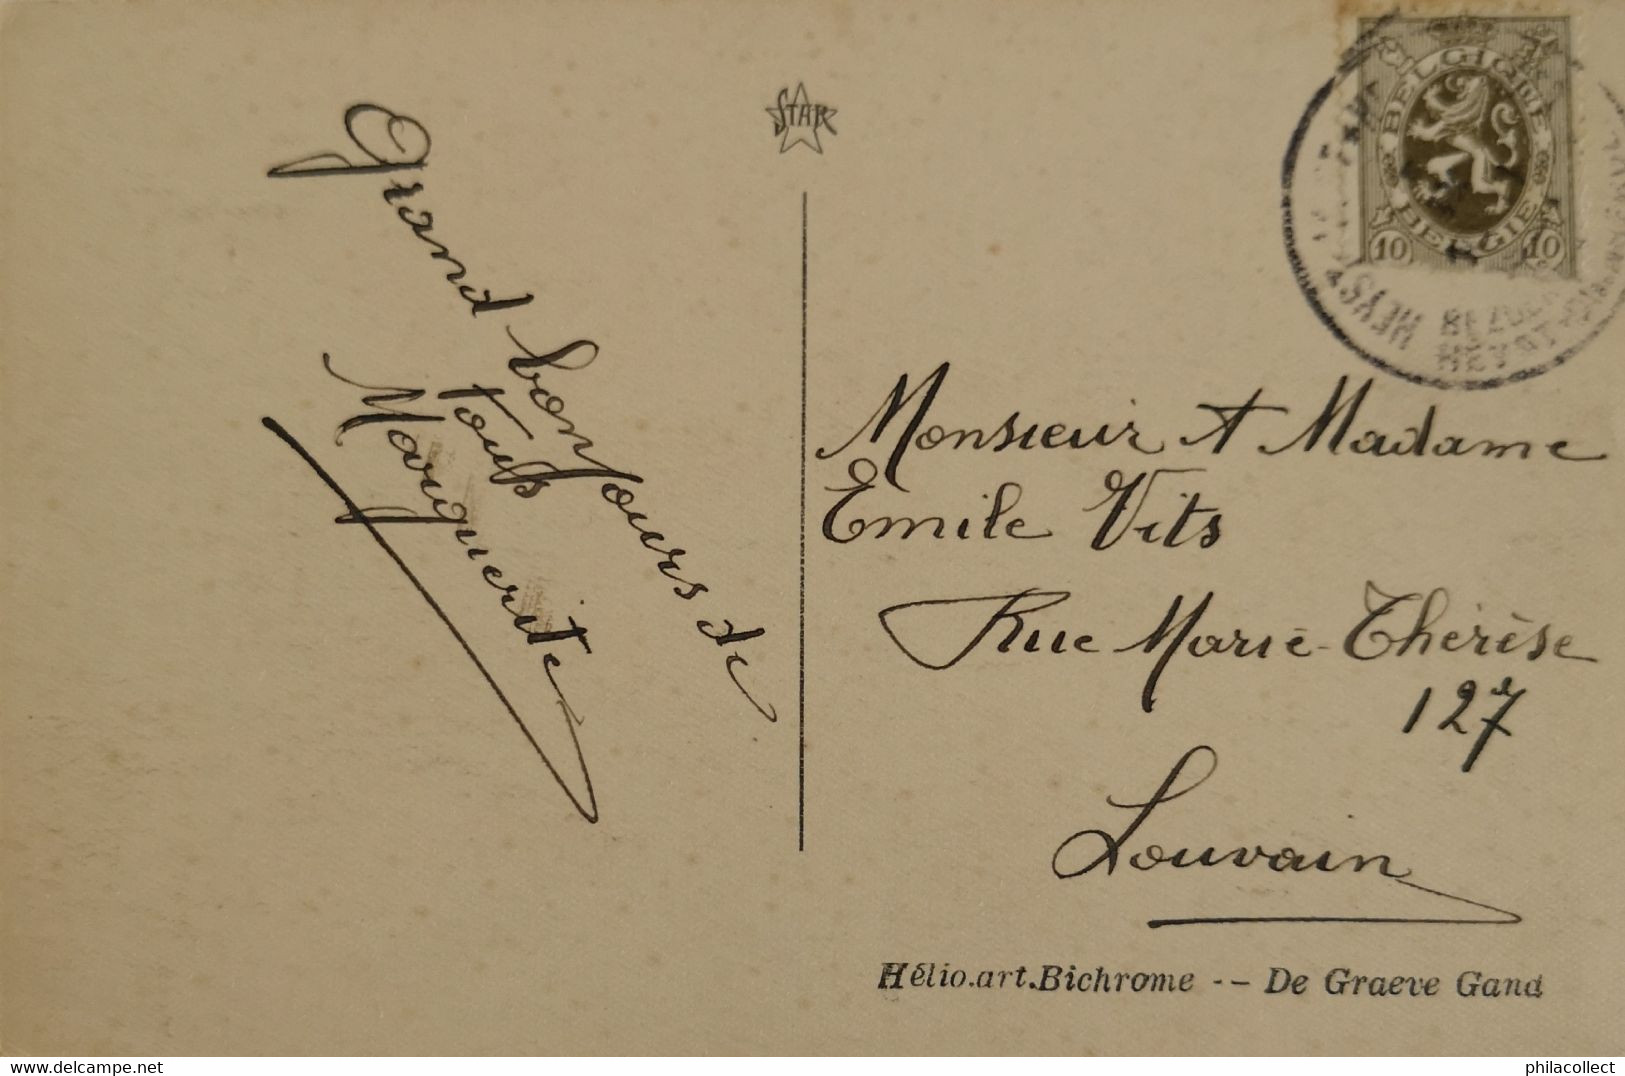 Grand bonjours de
tous
Marguerite
STAR
BELGIQUE
BELGIE
10 10
HEYST
BEZOEK
HEYST
Monsieur et Madame
Emile Vits
Rue Marie-Thérèse
127
Louvain
Hélio.art.Bichrome -- De Graeve Gand
delcampe.net
philacollect